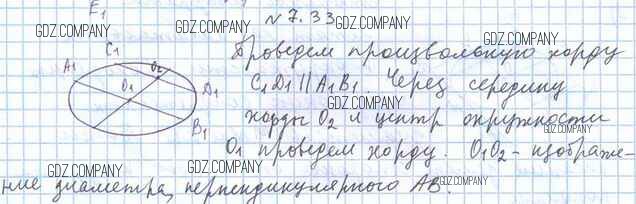 E₁
N 7.33
GDZ.COMPANY GDZ.COMPANY GDZ.COMPANY
C₁ O₂ Проведем произвольную хорду
A₁ O₁ D₁ C₁D₁ || A₁B₁. Через середину
B₁ хорды O₂ и центр окружности
GDZ.COMPANY GDZ.COMPANY GDZ.COMPANY
O₁ проведем хорду. O₁O₂ - изображе-
GDZ.COMPANY GDZ.COMPANY GDZ.COMPANY
ние диаметра, перпендикулярного AB.